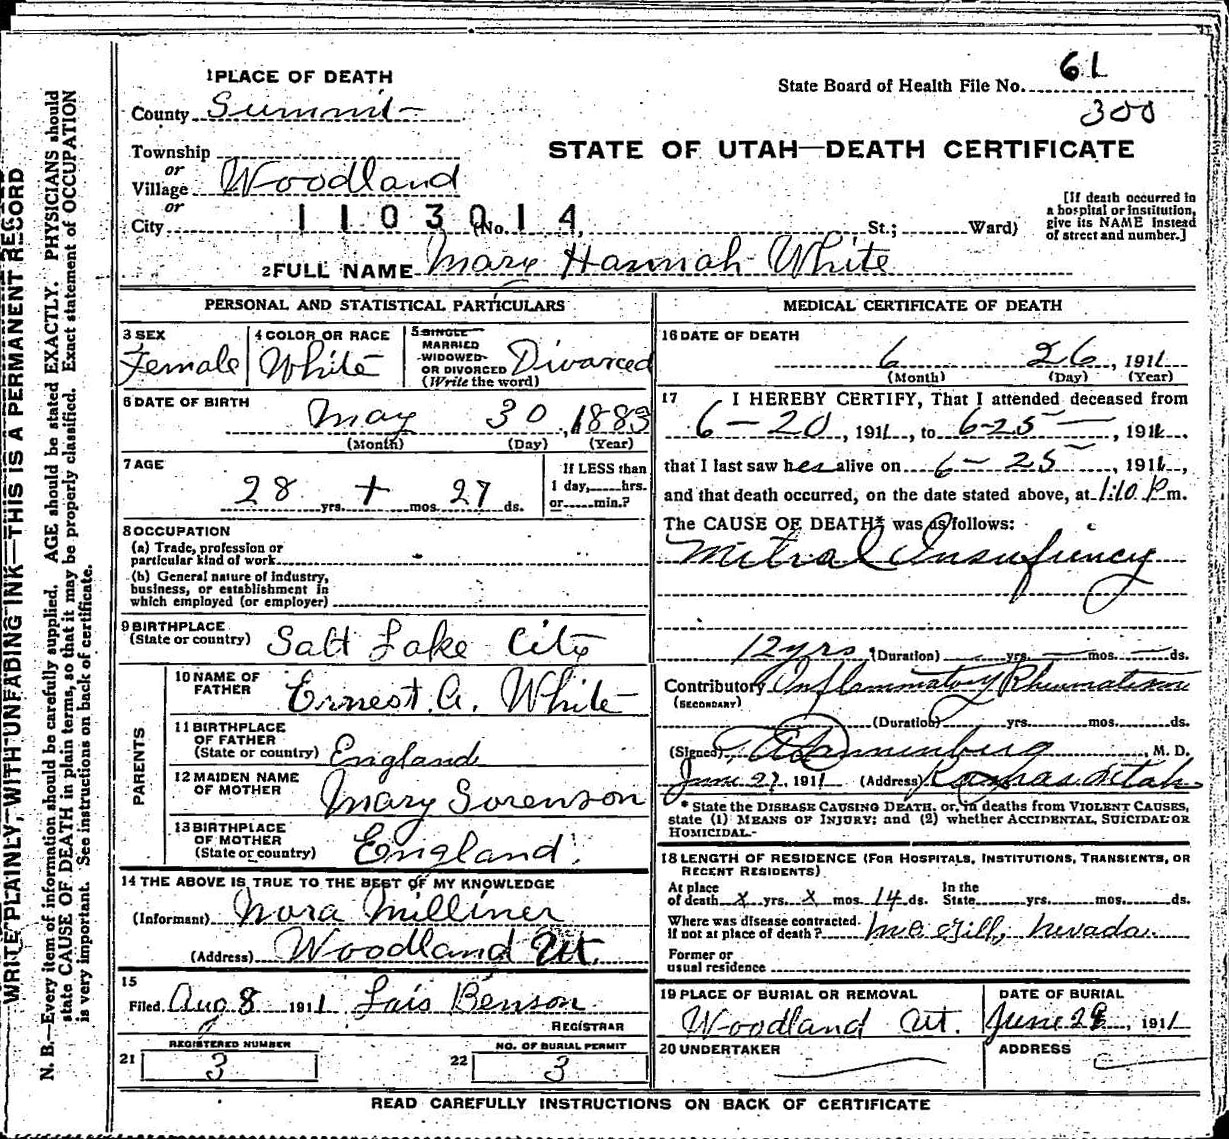 WRITE PLAINLY, WITH UNFADING INK—THIS IS A PERMANENT RECORD
N. B.—Every item of information should be carefully supplied. AGE should be stated EXACTLY. PHYSICIANS should
state CAUSE OF DEATH in plain terms, so that it may be properly classified. Exact statement of OCCUPATION
is very important. See instructions on back of certificate.
1 PLACE OF DEATH
State Board of Health File No. 61
300
County Summit
STATE OF UTAH—DEATH CERTIFICATE
Township
or
Village Woodland
or
City 1103014 (No. St.; Ward)
[If death occurred in
a hospital or institution,
give its NAME instead
of street and number.]
2 FULL NAME Mary Hannah White
PERSONAL AND STATISTICAL PARTICULARS
3 SEX
Female
4 COLOR OR RACE
White
5 SINGLE
MARRIED
WIDOWED
OR DIVORCED
(Write the word)
Divorced
6 DATE OF BIRTH
May 30, 1883
(Month) (Day) (Year)
7 AGE
28 yrs. + mos. 27 ds.
If LESS than
1 day, hrs.
or min.?
8 OCCUPATION
(a) Trade, profession or
particular kind of work
(b) General nature of industry,
business, or establishment in
which employed (or employer)
9 BIRTHPLACE
(State or country) Salt Lake City
PARENTS
10 NAME OF
FATHER Ernest. G. White
11 BIRTHPLACE
OF FATHER
(State or country) England
12 MAIDEN NAME
OF MOTHER Mary Sorenson
13 BIRTHPLACE
OF MOTHER
(State or country) England.
14 THE ABOVE IS TRUE TO THE BEST OF MY KNOWLEDGE
(Informant) Nora Milliner
(Address) Woodland Ut.
15
Filed Aug 8 1911 Lais Benson
REGISTRAR
REGISTERED NUMBER
21 3
NO. OF BURIAL PERMIT
22 3
MEDICAL CERTIFICATE OF DEATH
16 DATE OF DEATH
6 26, 1911
(Month) (Day) (Year)
17 I HEREBY CERTIFY, That I attended deceased from
6-20, 1911, to 6-25-, 1911.
that I last saw her alive on 6-25, 1911,
and that death occurred, on the date stated above, at 1:10 P m.
The CAUSE OF DEATH* was as follows:
Mitral Insufiency
12 yrs (Duration) yrs. mos. ds.
Contributory Inflammatory Rheumatism
(SECONDARY)
(Duration) yrs. mos. ds.
(Signed) , M. D.
June 27, 1911 (Address) Kamas Utah
* State the DISEASE CAUSING DEATH, or, in deaths from VIOLENT CAUSES,
state (1) MEANS OF INJURY; and (2) whether ACCIDENTAL, SUICIDAL OR
HOMICIDAL.
18 LENGTH OF RESIDENCE (FOR HOSPITALS, INSTITUTIONS, TRANSIENTS, OR
RECENT RESIDENTS)
At place
of death x yrs. x mos. 14 ds.
In the
State yrs. mos. ds.
Where was disease contracted.
If not at place of death? McGill, Nevada.
Former or
usual residence
19 PLACE OF BURIAL OR REMOVAL
Woodland Ut.
DATE OF BURIAL
June 28, 1911
20 UNDERTAKER
ADDRESS
READ CAREFULLY INSTRUCTIONS ON BACK OF CERTIFICATE